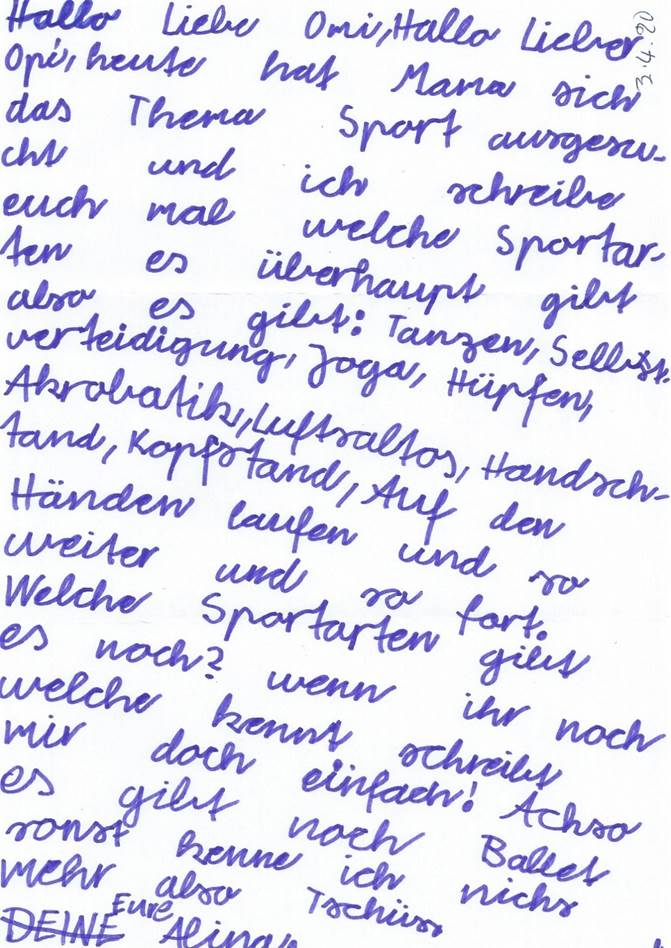 Hallo Liebe Omi, Hallo Lieber
3.4.20
Opi, heute hat Mama sich
das Thema Sport ausgesu-
cht und ich schreibe
euch mal welche Sportar-
ten es überhaupt gibt
also es gibt: Tanzen, Selbst
verteidigung, Joga, Hüpfen,
Akrobatik, Luftsaltos, Handsch-
tand, Kopfstand, Auf den
Händen laufen und so
weiter und so fort.
Welche Sportarten gibt
es noch? wenn ihr noch
welche kennt schreibt
mir doch einfach! Achso
es gibt noch Ballet
sonst kenne ich nichs
mehr also Tschüss
Eure
DEINE Alina